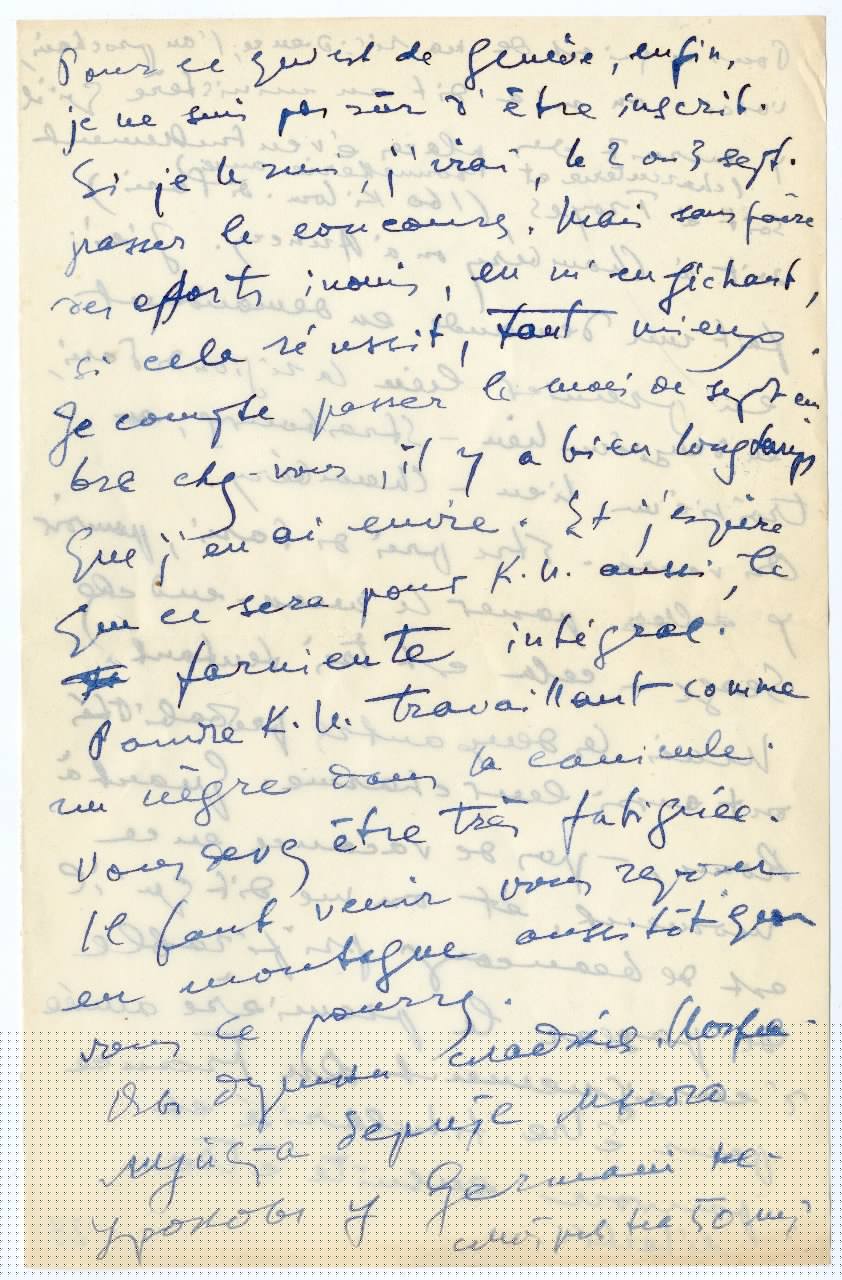 Pour ce qui est de Genève, enfin,
je ne suis pas sûr d'être inscrit.
Si je le suis, j'irai, le 2 ou 3 sept.
passer le concours. Mais sans faire
des efforts inouis, en m'en fichant,
si cela réussit, tant mieux.
Je compte passer le mois de septem
bre chez-vous, il y a bien longtemps
que j'en ai envie. Et j'espère
que ce sera pour K.U. aussi, le
farniente intégral.
Pauvre K.U. travaillant comme
un nègre dans la canicule.
Vous devez être très fatiguée.
Il faut venir vous reposer
en montagne aussitôt que
vous le pourrez.
много
у Germani